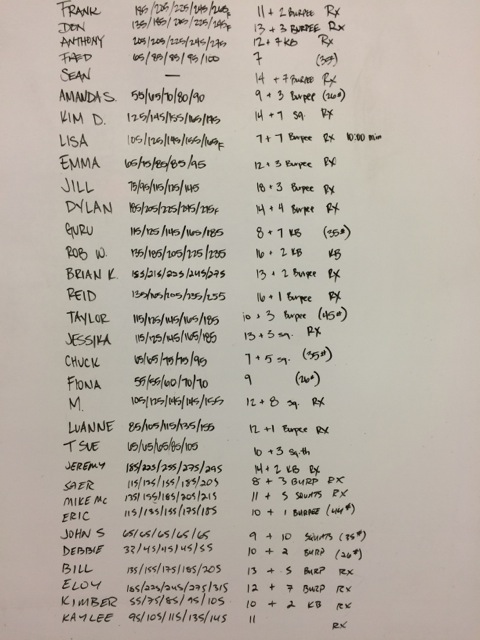 FRANK 185/205/225/245/265F 11 + 2 BURPEE RX
DON 135/185/205/225/245F 13 + 3 BURPEE RX
ANTHONY 205/205/225/245/275 12 + 7 KB RX
65/85/85/95/100 7 (35#)
SEAN — 14 + 7 BURPEE RX
AMANDA S. 55/65/70/80/90 9 + 3 Burpee (26#)
KIM D. 125/145/155/165/175 14 + 7 SQ. RX
LISA 105/125/145/155/165F 7 + 7 Burpee RX 10:00 min
EMMA 65/75/85/85/95 12 + 3 Burpee RX
JILL 75/95/115/125/145 18 + 3 Burpee RX
DYLAN 185/205/225/245/275F 14 + 4 Burpee RX
GURU 115/125/145/165/185 8 + 7 KB (35#)
ROB W. 135/185/205/225/235 16 + 2 KB KB
BRIAN K. 185/215/225/245/275 13 + 2 Burpee RX
REID 135/165/205/235/255 16 + 1 Burpee RX
TAYLOR 115/125/145/165/185 10 + 3 Burpee (45#)
JESSIKA 115/125/145/165/185 13 + 3 SQ. RX
CHUCK 65/65/75/75/95 7 + 5 SQ. (35#)
FIONA 55/55/60/70/70 9 (26#)
M. 105/125/145/145/155 12 + 8 SQ. RX
LUANNE 85/105/115/135/155 12 + 1 Burpee RX
T SUE 65/65/65/85/105 10 + 3
JEREMY 185/225/255/275/295 14 + 2 KB RX
115/135/155/185/205 8 + 3 BURP RX
MIKE MC 135/155/185/205/215 11 + 5 SQUATS RX
ERIC 115/135/155/175/185 10 + 1 BURPEE (44#)
JOHN S 65/65/65/65/65 9 + 10 SQUATS (35#)
DEBBIE 33/45/45/45/55 10 + 2 BURP (26#)
BILL 135/155/175/185/205 13 + 5 BURP RX
ELOY 185/225/245/275/315 12 + 7 BURP RX
KIMBER 55/75/85/95/105 10 + 2 KB RX
KAYLEE 95/105/115/135/145 11 RX